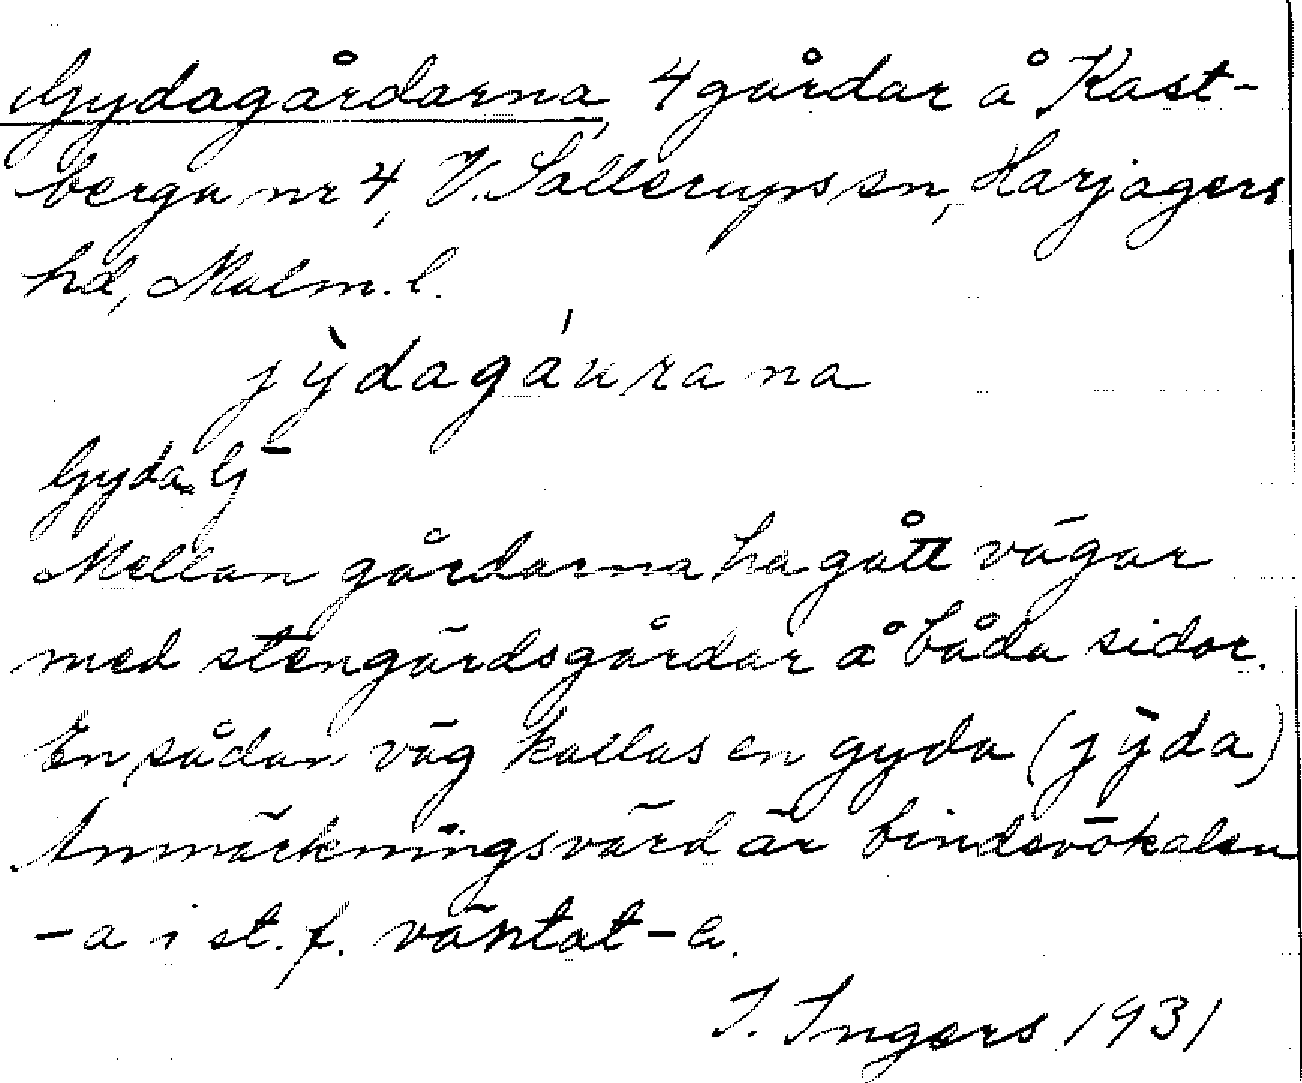 Gydagårdarna, 4 gårdar å Kast-
berga nr 4, V. Sallerups sn, Harjagers
hd, Malm. l.
jỳdagáurana
Gyda-
Mellan gårdarna ha gått vägar
med stengärdsgårdar å båda sidor.
En sådan väg kallas en gyda (jỳda)
Anmärkningsvärd är bindevokalen
-a i st. f. väntat -e.
I. Ingers 1931